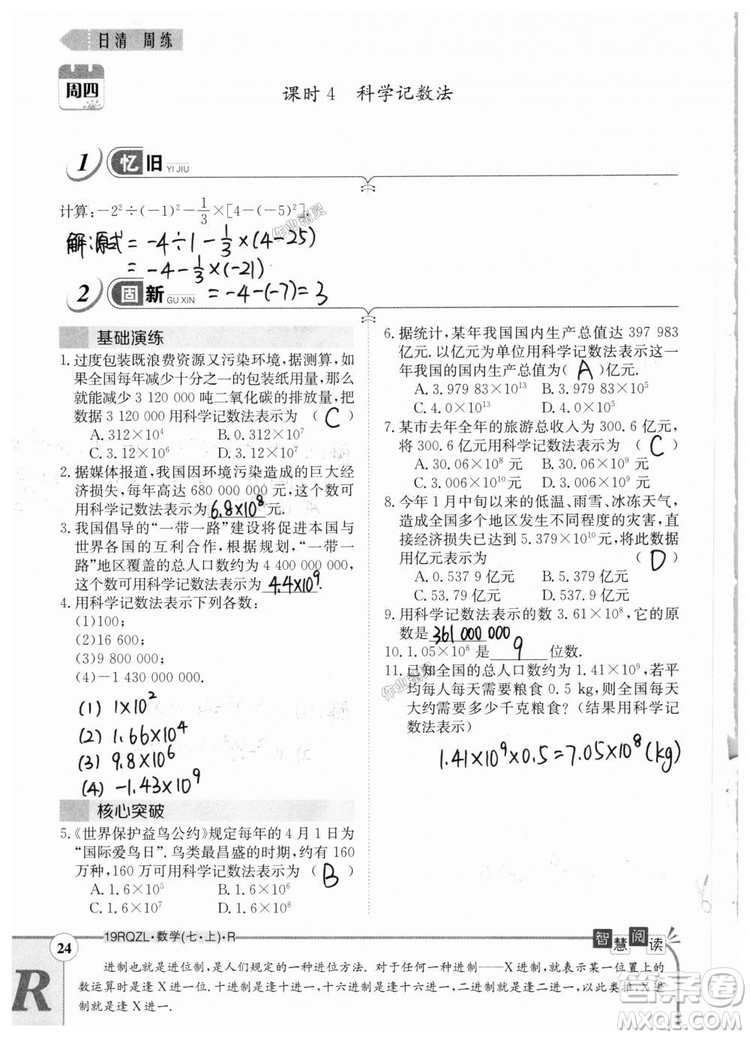 日清 周练
周四
课时4 科学记数法
1 忆旧 YI JIU
计算:-2²÷(-1)²-1/3×[4-(-5)²].
解:源式=-4÷1-1/3×(4-25)
=-4-1/3×(-21)
=-4-(-7)=3
2 固新 GU XIN
基础演练
1. 过度包装既浪费资源又污染环境,据测算,如
果全国每年减少十分之一的包装纸用量,那么
能减少 3 120 000 吨二氧化碳的排放量,把
数据 3 120 000 用科学记数法表示为 ( C )
A. 312×10⁴ B. 0.312×10⁷
C. 3.12×10⁶ D. 3.12×10⁷
2. 据媒体报道,我国因环境污染造成的巨大
经济损失,每年高达 680 000 000 元,这个数可
用科学记数法表示为 6.8×10⁸ 元.
3. 我国倡导的“一带一路”建设将促进本国与
世界各国的互利合作,根据规划,“一带一
路”地区覆盖的总人口数约为 4 400 000 000,
这个数可用科学记数法表示为 4.4×10⁹.
4. 用科学记数法表示下列各数:
(1)100;
(2)16 600;
(4)-1 430 000 000.
(1) 1×10²
(2) 1.66×10⁴
(3) 9.8×10⁶
(4) -1.43×10⁹
核心突破
5. 《世界保护益鸟公约》规定每年的 4 月 1 日为
“国际爱鸟日”.鸟类最昌盛的时期,约有 160
万种,160 万可用科学记数法表示为 ( B )
A. 1.6×10⁵ B. 1.6×10⁶
C. 1.6×10⁷ D. 1.6×10⁸
6. 据统计,某年我国国内生产总值达 397 983
亿元.以亿元为单位用科学记数法表示这
一年我国的国内生产总值为 ( A ) 亿元.
A. 3.979 83×10¹³ B. 3.979 83×10⁵
C. 4.0×10¹³ D. 4.0×10⁵
7. 某市去年全年的旅游总收入为 300.6 亿元,
将 300.6 亿元用科学记数法表示为 ( C )
A. 30.06×10⁸ 元 B. 30.06×10⁹ 元
C. 3.006×10¹⁰ 元 D. 3.006×10⁹ 元
8. 今年 1 月中旬以来的低温、雨雪、冰冻天气,
造成全国多个地区发生不同程度的灾害,直
接经济损失达到 5.379×10¹⁰ 元,将此数据
用亿元表示为 ( D )
A. 0.537 9 亿元 B. 5.379 亿元
C. 53.79 亿元 D. 537.9 亿元
9. 用科学记数法表示的数 3.61×10⁸,它的原
数是 361 000 000
10. 1.05×10⁸ 是 9 位数.
11. 已知全国的总人口数约为 1.41×10⁹,若平
均每人每天需要粮食 0.5 kg,则全国每天
大约需要多少千克粮食?(结果用科学记
数法表示)
1.41×10⁹×0.5=7.05×10⁸(kg)
24
19RQZL·数学(七·上)·R
智慧阅读
R
进制也就是进位制,是人们规定的一种进位方法. 对于任何一种进制——X进制,就表示某一位置上的
数运算时是逢X进一位.十进制是逢十进一,十六进制是逢十六进一,二进制就是逢二进一,以此类推,X进
制就是逢X进一.
答案圈
作业精灵
作业精灵